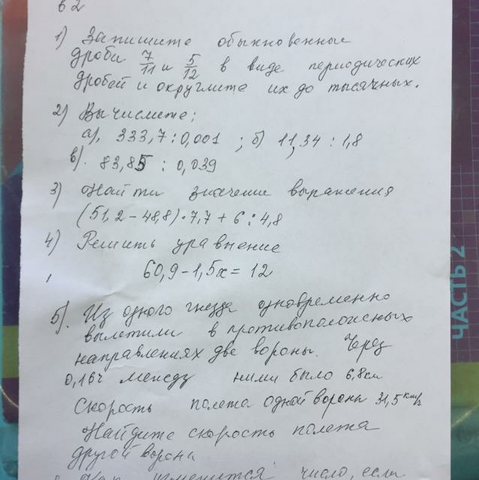 В2
1) Запишите обыкновенные
дроби 7/11 и 5/12 в виде периодических
дробей и округлите их до тысячных.
2) Вычислите:
а). 333,7 : 0,001 ; б) 11,34 : 1,8
в). 83,85 : 0,039
3) Найти значение выражения
(51,2 – 48,8) · 7,7 + 6 : 4,8
4) Решить уравнение
60,9 – 1,5х = 12
5). Из одного гнезда одновременно
вылетили в противоположных
направлениях две вороны. Через
0,16ч между ними было 6,8км
Скорость полета одной вороны 31,5 км/ч
Найдите скорость полета
другой вороны
изменится число, если
ЧАСТЬ 2